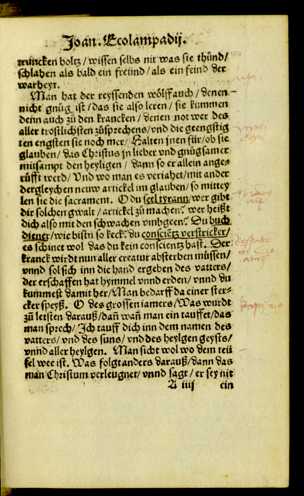 Joan. Ecolampadij.
truncken holtz / wissen selbs nit was sie thůnd /
schlahen als bald ein freünd / als ein feind der
warheyt.
Man hat der reyssenden wölff auch / denen
nicht gnůg ist / das sie also leren / sie kummen
denn auch zů den krancken / denen not wer des
aller trostlichsten zůsprechens / vnd die geengstig
ten engsten sie noch mer / Halten jnen für / ob sie
glauben / das Christus jn lieber vnd gnůgsamer
můsampt den heyligen / dann so er allein ange-
rüfft werd / Vnd wo man es verjahet / mit ander
dergleychen neuw artickel im glauben / so mittey
len sie die sacrament. O du seeltyrann / wer gibt
dir solchen gwalt / artickel zů machen? wer heißt
dich also mit den schwachen vmbgeen? Du buch
diener / wie bistu so keck: du conscientz verstricker /
es schinet wol das du kein conscientz hast. Der
kranck wirdt nun aller creatur absterben müssen /
vnnd sol sich inn die hand ergeben des vatters /
der erschaffen hat hymmel vnnd erden / vnnd du
kummest damit her / Man bedarff da einer ster-
cker speyß. O des grossen iamers / Was wurdt
zů letsten darauß / dañ wañ man ein tauffet / das
man sprech / Jch tauff dich inn dem namen des
vatters / vnd des suns / vnd des heylgen geysts /
vnnd aller heylgen. Man sicht wol wo dem teü
fel wee ist. Was folgt anders darauß / dann das
man Christum verleugnet / vnnd sagt / er sey nit
A iiij ein